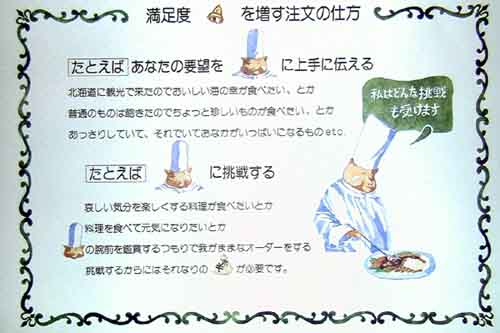 満足度 を増す注文の仕方
たとえば あなたの要望を に上手に伝える
北海道に観光で来たのでおいしい海の幸が食べたい、とか
普通のものは飽きたのでちょっと珍しいものが食べたい、とか
あっさりしていて、それでいておなかがいっぱいになるものetc.
私はどんな挑戦
も受けます
たとえば に挑戦する
哀しい気分を楽しくする料理が食べたいとか
料理を食べて元気になりたいとか
の腕前を鑑賞するつもりで我がままなオーダーをする
挑戦するからにはそれなりの が必要です。